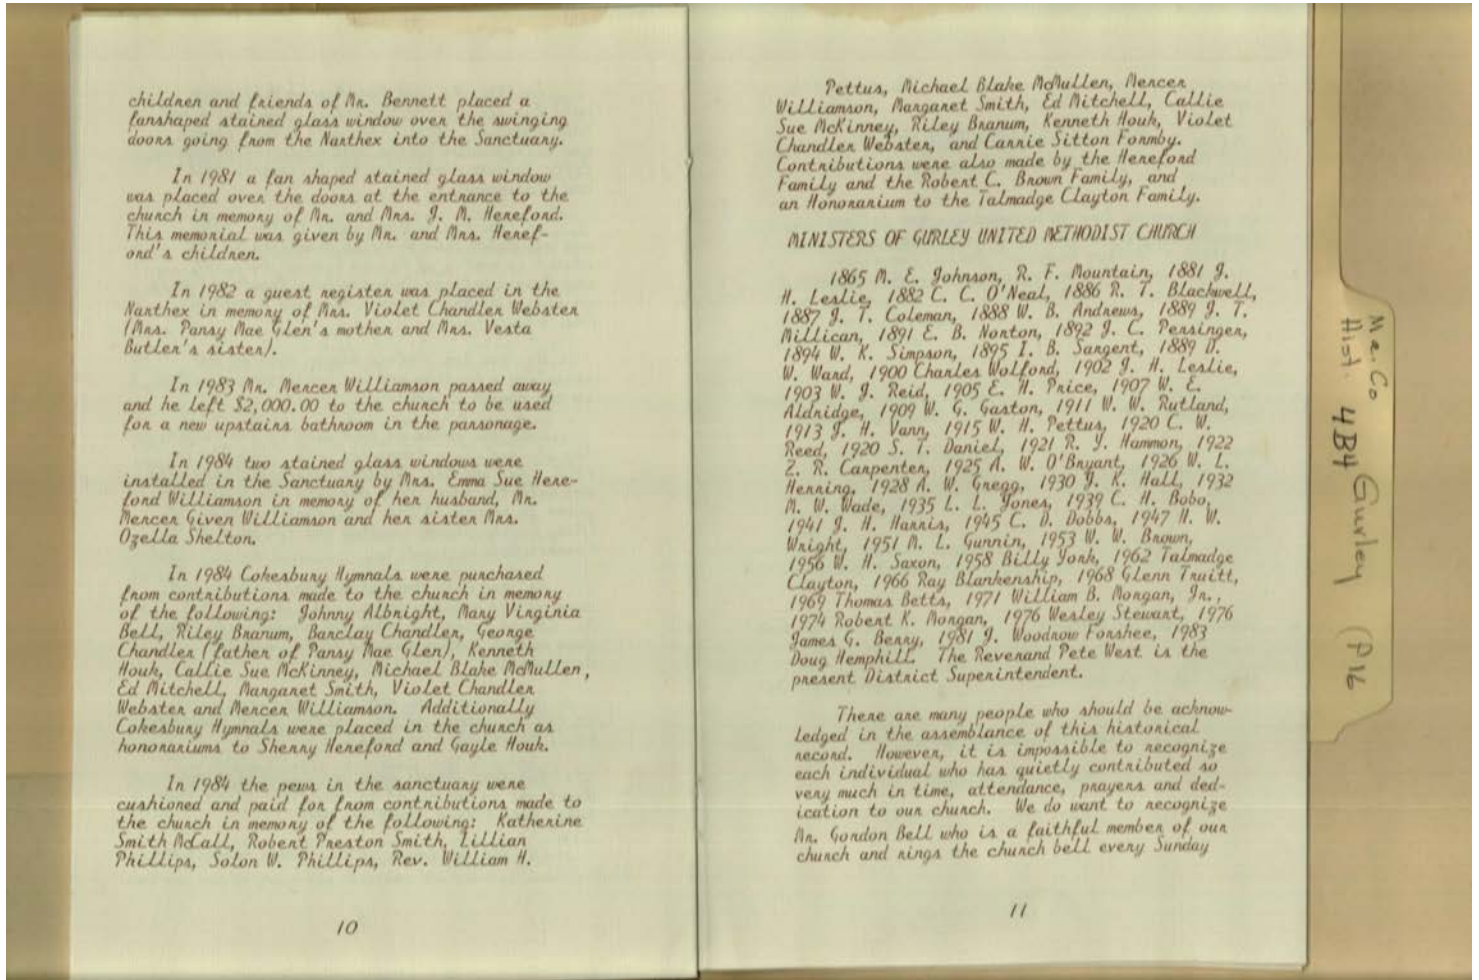 children and friends of Mr. Bennett placed a
fanshaped stained glass window over the swinging
doors going from the Narthex into the Sanctuary.
In 1981 a fan shaped stained glass window
was placed over the doors at the entrance to the
church in memory of Mr. and Mrs. J. M. Hereford.
This memorial was given by Mr. and Mrs. Heref-
ord's children.
In 1982 a guest register was placed in the
Narthex in memory of Mrs. Violet Chandler Webster
(Mrs. Pansy Mae Glen's mother and Mrs. Vesta
Butler's sister).
In 1983 Mr. Mercer Williamson passed away
and he left $2,000.00 to the church to be used
for a new upstairs bathroom in the parsonage.
In 1984 two stained glass windows were
installed in the Sanctuary by Mrs. Emma Sue Here-
ford Williamson in memory of her husband, Mr.
Mercer Given Williamson and her sister Mrs.
Ozella Shelton.
In 1984 Cokesbury Hymnals were purchased
from contributions made to the church in memory
of the following: Johnny Albright, Mary Virginia
Bell, Riley Branum, Barclay Chandler, George
Chandler (father of Pansy Mae Glen), Kenneth
Houk, Callie Sue McKinney, Michael Blake McMullen,
Ed Mitchell, Margaret Smith, Violet Chandler
Webster and Mercer Williamson. Additionally
Cokesbury Hymnals were placed in the church as
honorariums to Sherry Hereford and Gayle Houk.
In 1984 the pews in the sanctuary were
cushioned and paid for from contributions made to
the church in memory of the following: Katherine
Smith McCall, Robert Preston Smith, Lillian
Phillips, Solon W. Phillips, Rev. William H.
10
Pettus, Michael Blake McMullen, Mercer
Williamson, Margaret Smith, Ed Mitchell, Callie
Sue McKinney, Riley Branum, Kenneth Houk, Violet
Chandler Webster, and Carrie Sitton Formby.
Contributions were also made by the Hereford
Family and the Robert C. Brown Family, and
an Honorarium to the Talmadge Clayton Family.
MINISTERS OF GURLEY UNITED METHODIST CHURCH
1865 M. E. Johnson, R. F. Mountain, 1881 J.
H. Leslie, 1882 C. C. O'Neal, 1886 R. T. Blackwell,
1887 J. T. Coleman, 1888 W. B. Andrews, 1889 J. T.
Millican, 1891 E. B. Norton, 1892 J. C. Persinger,
1894 W. K. Simpson, 1895 I. B. Sargent, 1889 D.
W. Ward, 1900 Charles Wolford, 1902 J. H. Leslie,
1903 W. J. Reid, 1905 E. H. Price, 1907 W. E.
Aldridge, 1909 W. G. Gaston, 1911 W. W. Rutland,
1913 J. H. Vann, 1915 W. H. Pettus, 1920 C. W.
Reed, 1920 S. T. Daniel, 1921 R. Y. Hammon, 1922
Z. R. Carpenter, 1925 A. W. O'Bryant, 1926 W. L.
Henning, 1928 A. W. Gregg, 1930 J. K. Hall, 1932
M. W. Wade, 1935 L. L. Jones, 1939 C. H. Bobo,
1941 J. H. Harris, 1945 C. D. Dobbs, 1947 H. W.
Wright, 1951 M. L. Gunnin, 1953 W. W. Brown,
1956 W. H. Saxon, 1958 Billy York, 1962 Talmadge
Clayton, 1966 Ray Blankenship, 1968 Glenn Truitt,
1969 Thomas Betts, 1971 William B. Morgan, Jr.,
1974 Robert K. Morgan, 1976 Wesley Stewart, 1976
James G. Berry, 1981 J. Woodrow Forshee, 1983
Doug Hemphill. The Revenand Pete West is the
present District Superintendent.
There are many people who should be acknow-
ledged in the assemblance of this historical
record. However, it is impossible to recognize
each individual who has quietly contributed so
very much in time, attendance, prayers and ded-
ication to our church. We do want to recognize
Mr. Gordon Bell who is a faithful member of our
church and rings the church bell every Sunday
11
Ma. Co
Hist. 4B4 Gurley (P16